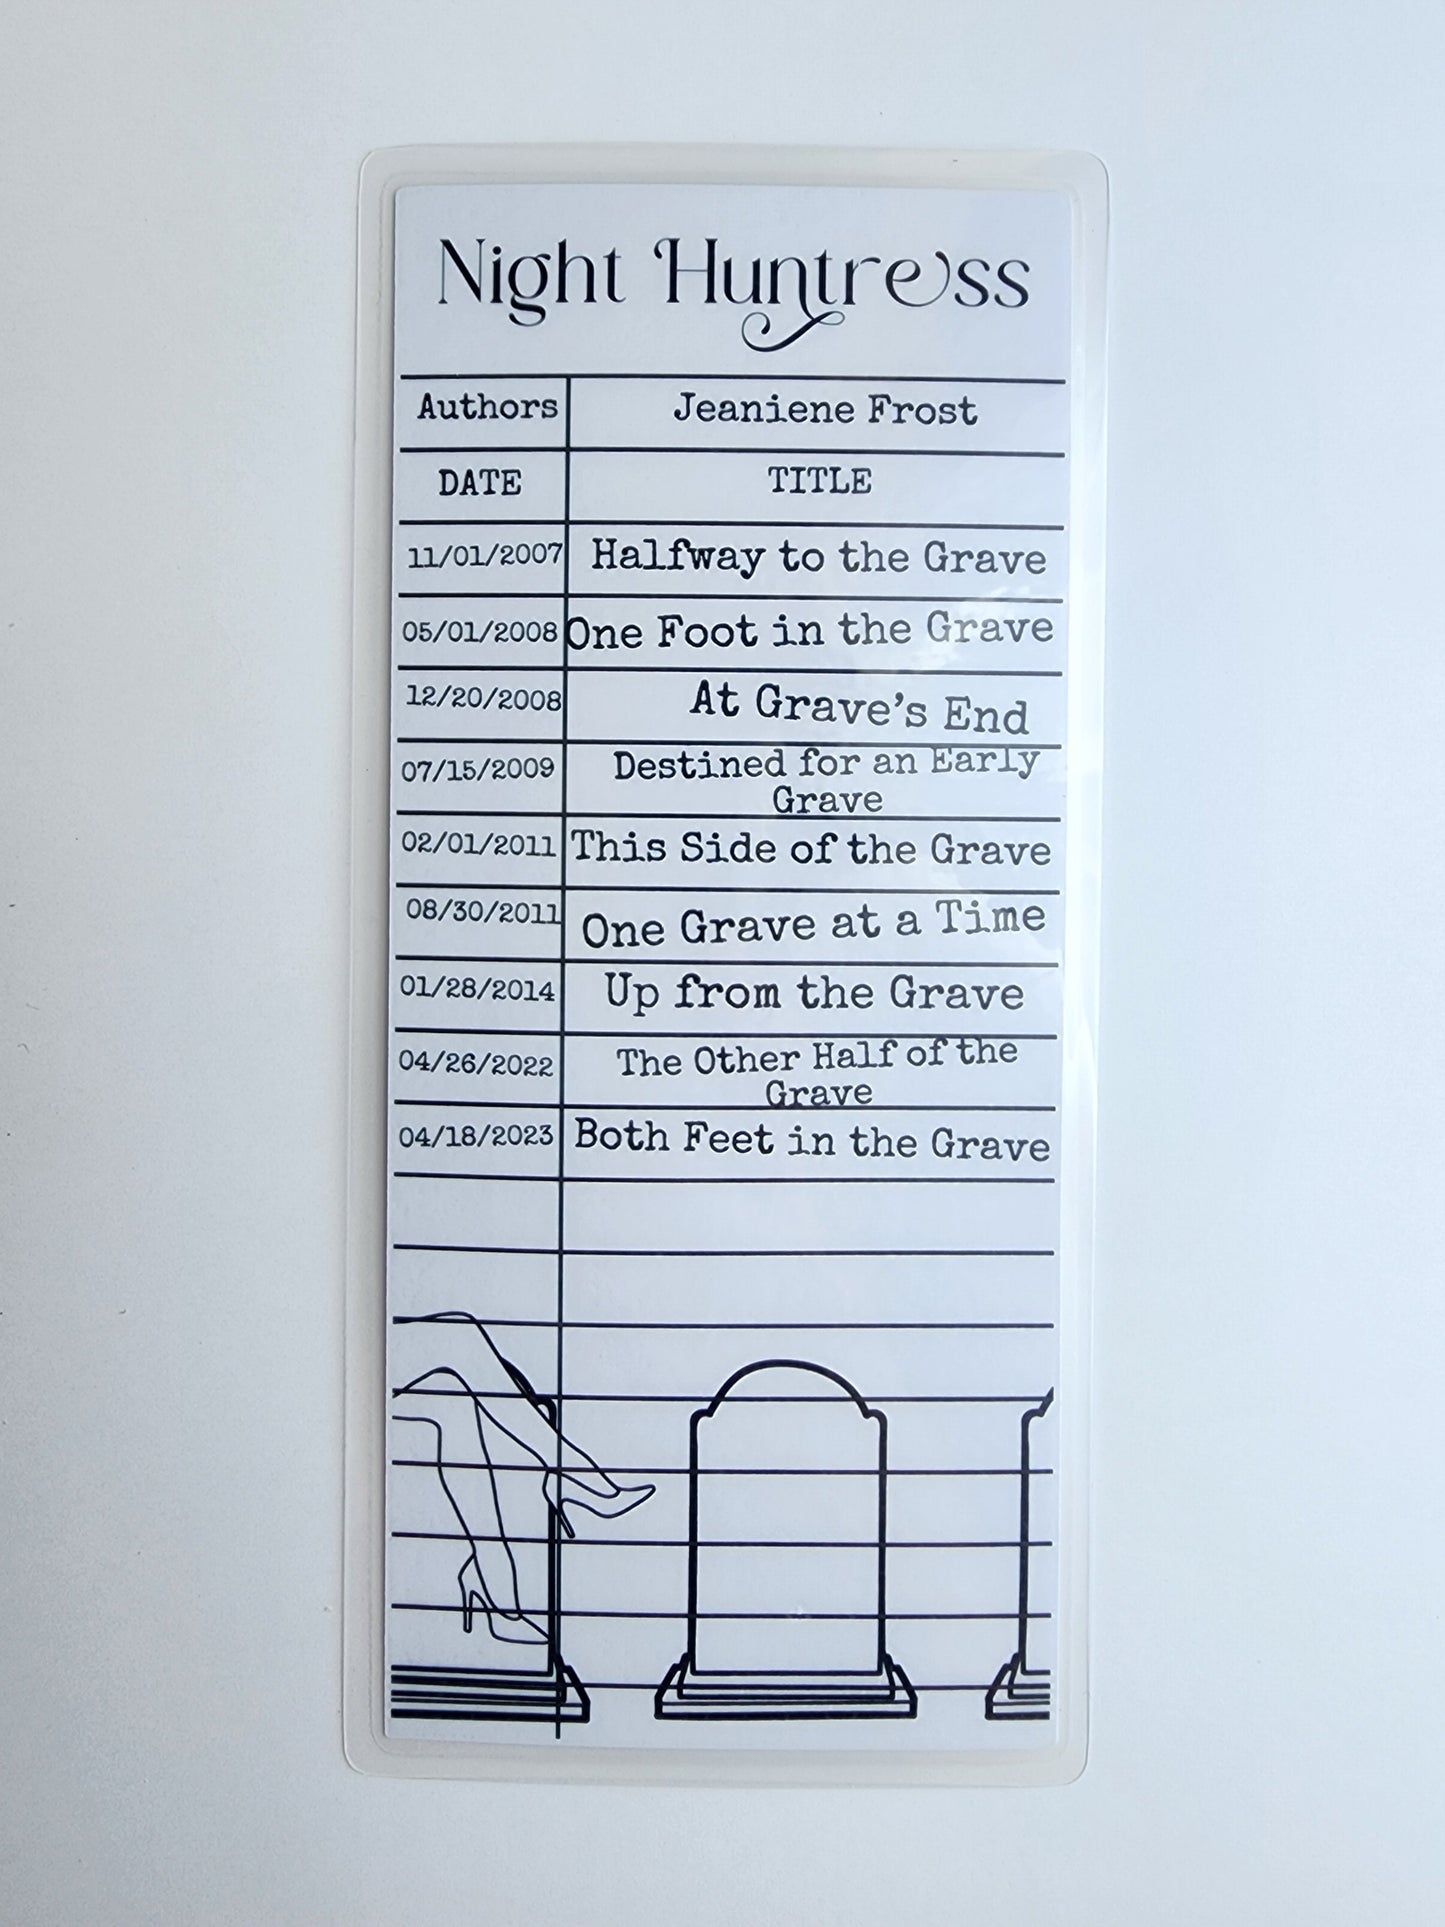 Night Huntress
Authors Jeaniene Frost
DATE TITLE
11/01/2007 Halfway to the Grave
05/01/2008 One Foot in the Grave
12/20/2008 At Grave's End
07/15/2009 Destined for an Early
Grave
02/01/2011 This Side of the Grave
08/30/2011 One Grave at a Time
01/28/2014 Up from the Grave
04/26/2022 The Other Half of the
Grave
04/18/2023 Both Feet in the Grave